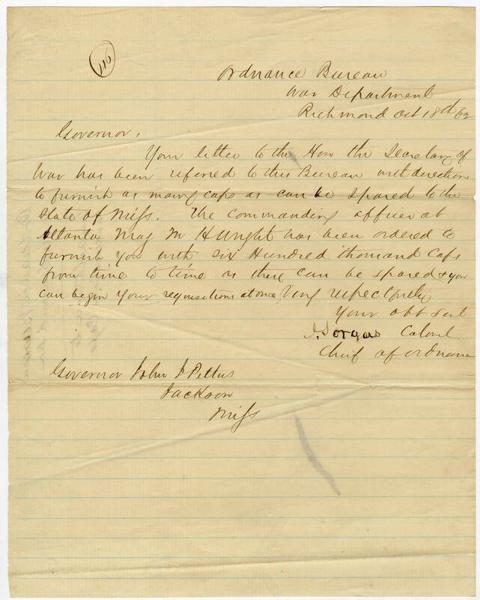 116
Ordnance Bureau
War Department
Richmond Oct 18th 62
Governor,
Your letter to the Hon the Secretary of
War has been referred to this Bureau with directions
to furnish as many caps as can be spared to the
State of Miss. The commanding officer at
Atlanta Maj M H Wright has been ordered to
furnish you with six Hundred thousand Caps
from time to time as these can be spared & you
can begin your requisitions at once Very respectfully
Your obt Svt
J. Gorgas Colonel
Chief of ordnance
Governor John J Pettus
Jackson
Miss